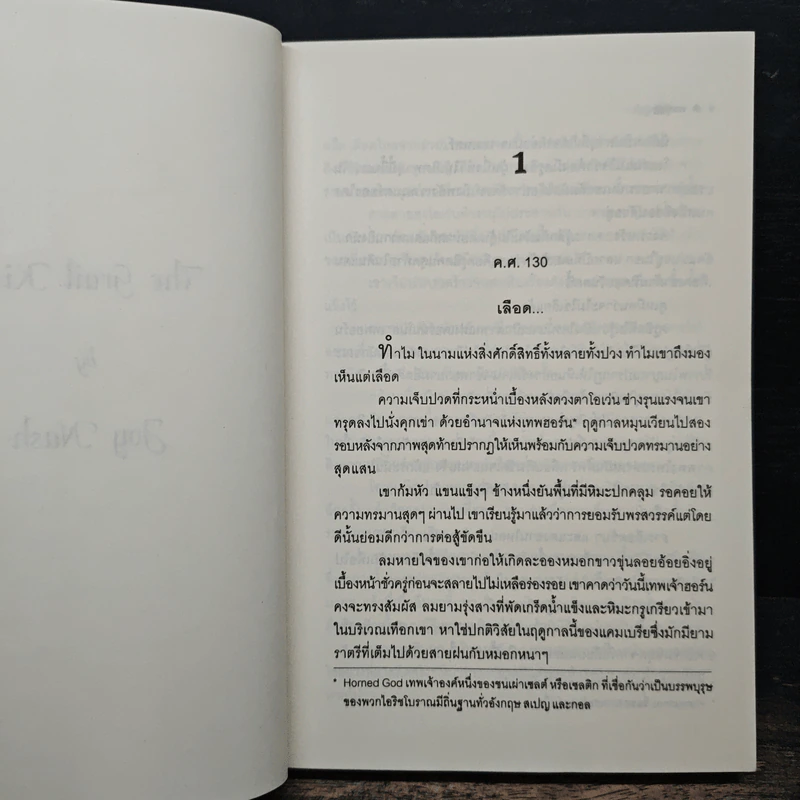 The Grail Ki
by
Joy Nash
1
ค.ศ. 130
เลือด...
ทำไม ในนามแห่งสิ่งศักดิ์สิทธิ์ทั้งหลายทั้งปวง ทำไมเขาถึงมอง
เห็นแต่เลือด
ความเจ็บปวดที่กระหน่ำเบื้องหลังดวงตาโอเว่น ช่างรุนแรงจนเขา
ทรุดลงไปนั่งคุกเข่า ด้วยอำนาจแห่งเทพฮอร์น* ฤดูกาลหมุนเวียนไปสอง
รอบหลังจากภาพสุดท้ายปรากฏให้เห็นพร้อมกับความเจ็บปวดทรมานอย่าง
สุดแสน
เขาก้มหัว แขนแข็งๆ ข้างหนึ่งยันพื้นที่มีหิมะปกคลุม รอคอยให้
ความทรมานสุดๆ ผ่านไป เขาเรียนรู้มาแล้วว่าการยอมรับพรสวรรค์แต่โดย
ดีนั้นย่อมดีกว่าการต่อสู้ขัดขืน
ลมหายใจของเขาก่อให้เกิดละอองหมอกขาวขุ่นลอยอ้อยอิ่งอยู่
เบื้องหน้าชั่วครู่ก่อนจะสลายไปไม่เหลือร่องรอย เขาคาดว่าวันนี้เทพเจ้าฮอร์น
คงจะทรงสัมผัส ลมยามรุ่งสางที่พัดเกร็ดน้ำแข็งและหิมะกรูเกรียวเข้ามา
ในบริเวณเทือกเขา หาใช่ปกติวิสัยในฤดูกาลนี้ของแคมเบรียซึ่งมักมียาม
ราตรีที่เต็มไปด้วยสายฝนกับหมอกหนาๆ
* Horned God เทพเจ้าองค์หนึ่งของชนเผ่าเซลต์ หรือเซลติก ที่เชื่อกันว่าเป็นบรรพบุรุษ
ของพวกไอริชโบราณมีถิ่นฐานทั่วอังกฤษ สเปญ และกอล